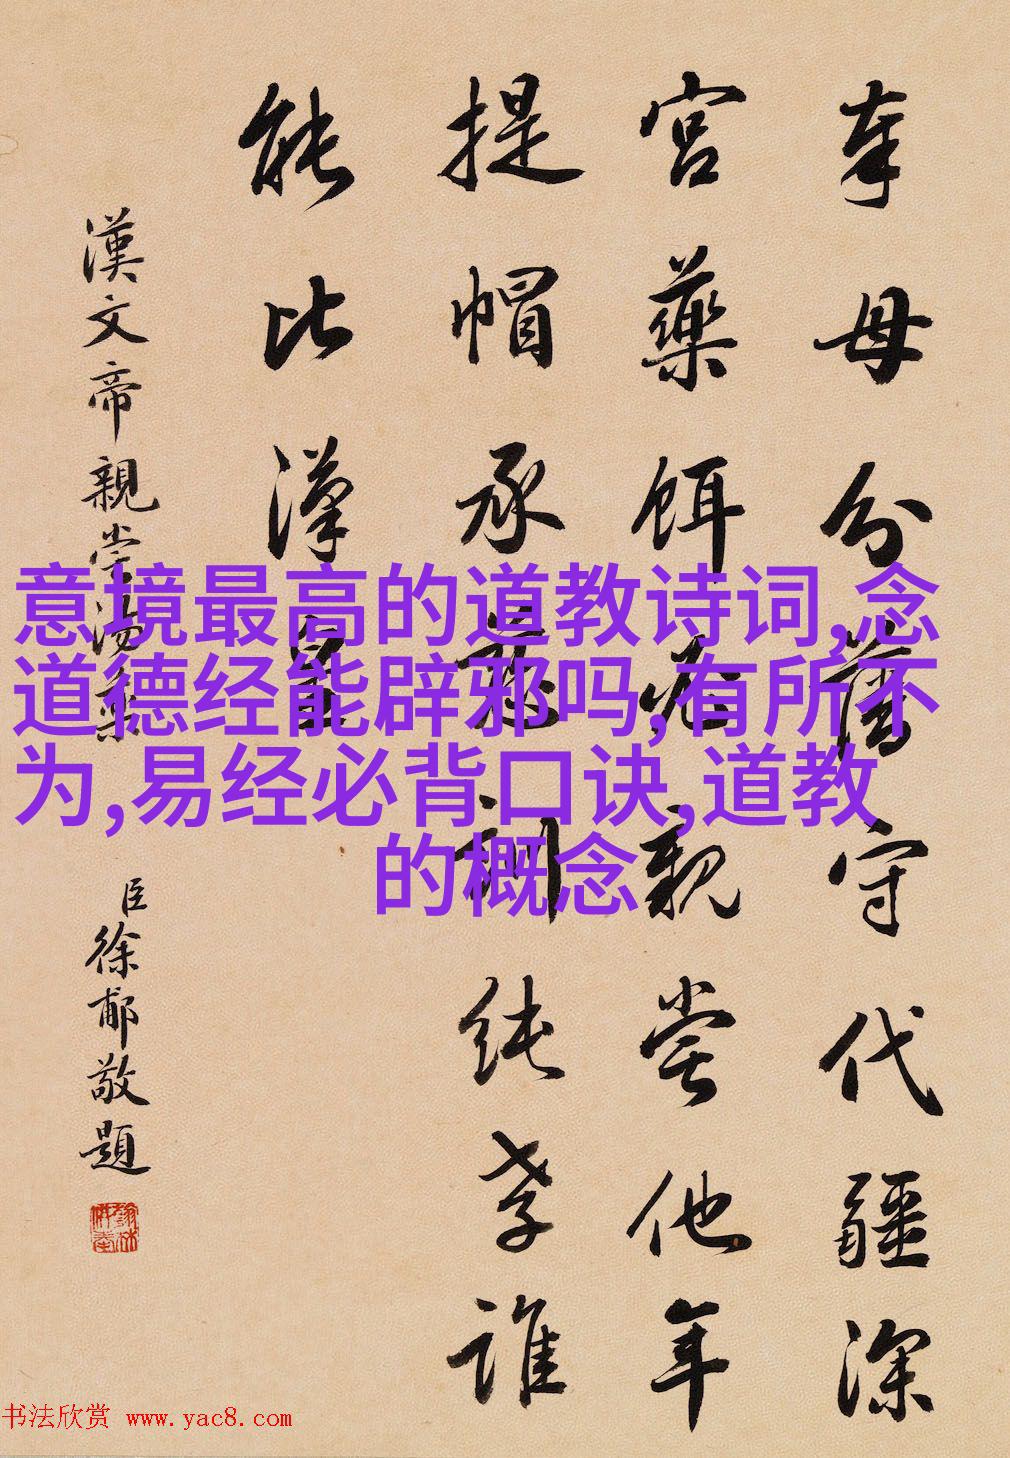 奉母分藩守代疆深
宮藥餌必親嘗他年
提帽承慈訓純孝誰
能比漢皇
漢文帝親嘗湯藥
臣徐郙敬題
意境最高的道教诗词,念
道德经能辟邪吗,有所不
为,易经必背口诀,道教
的概念
书法欣赏 www.yac8.com